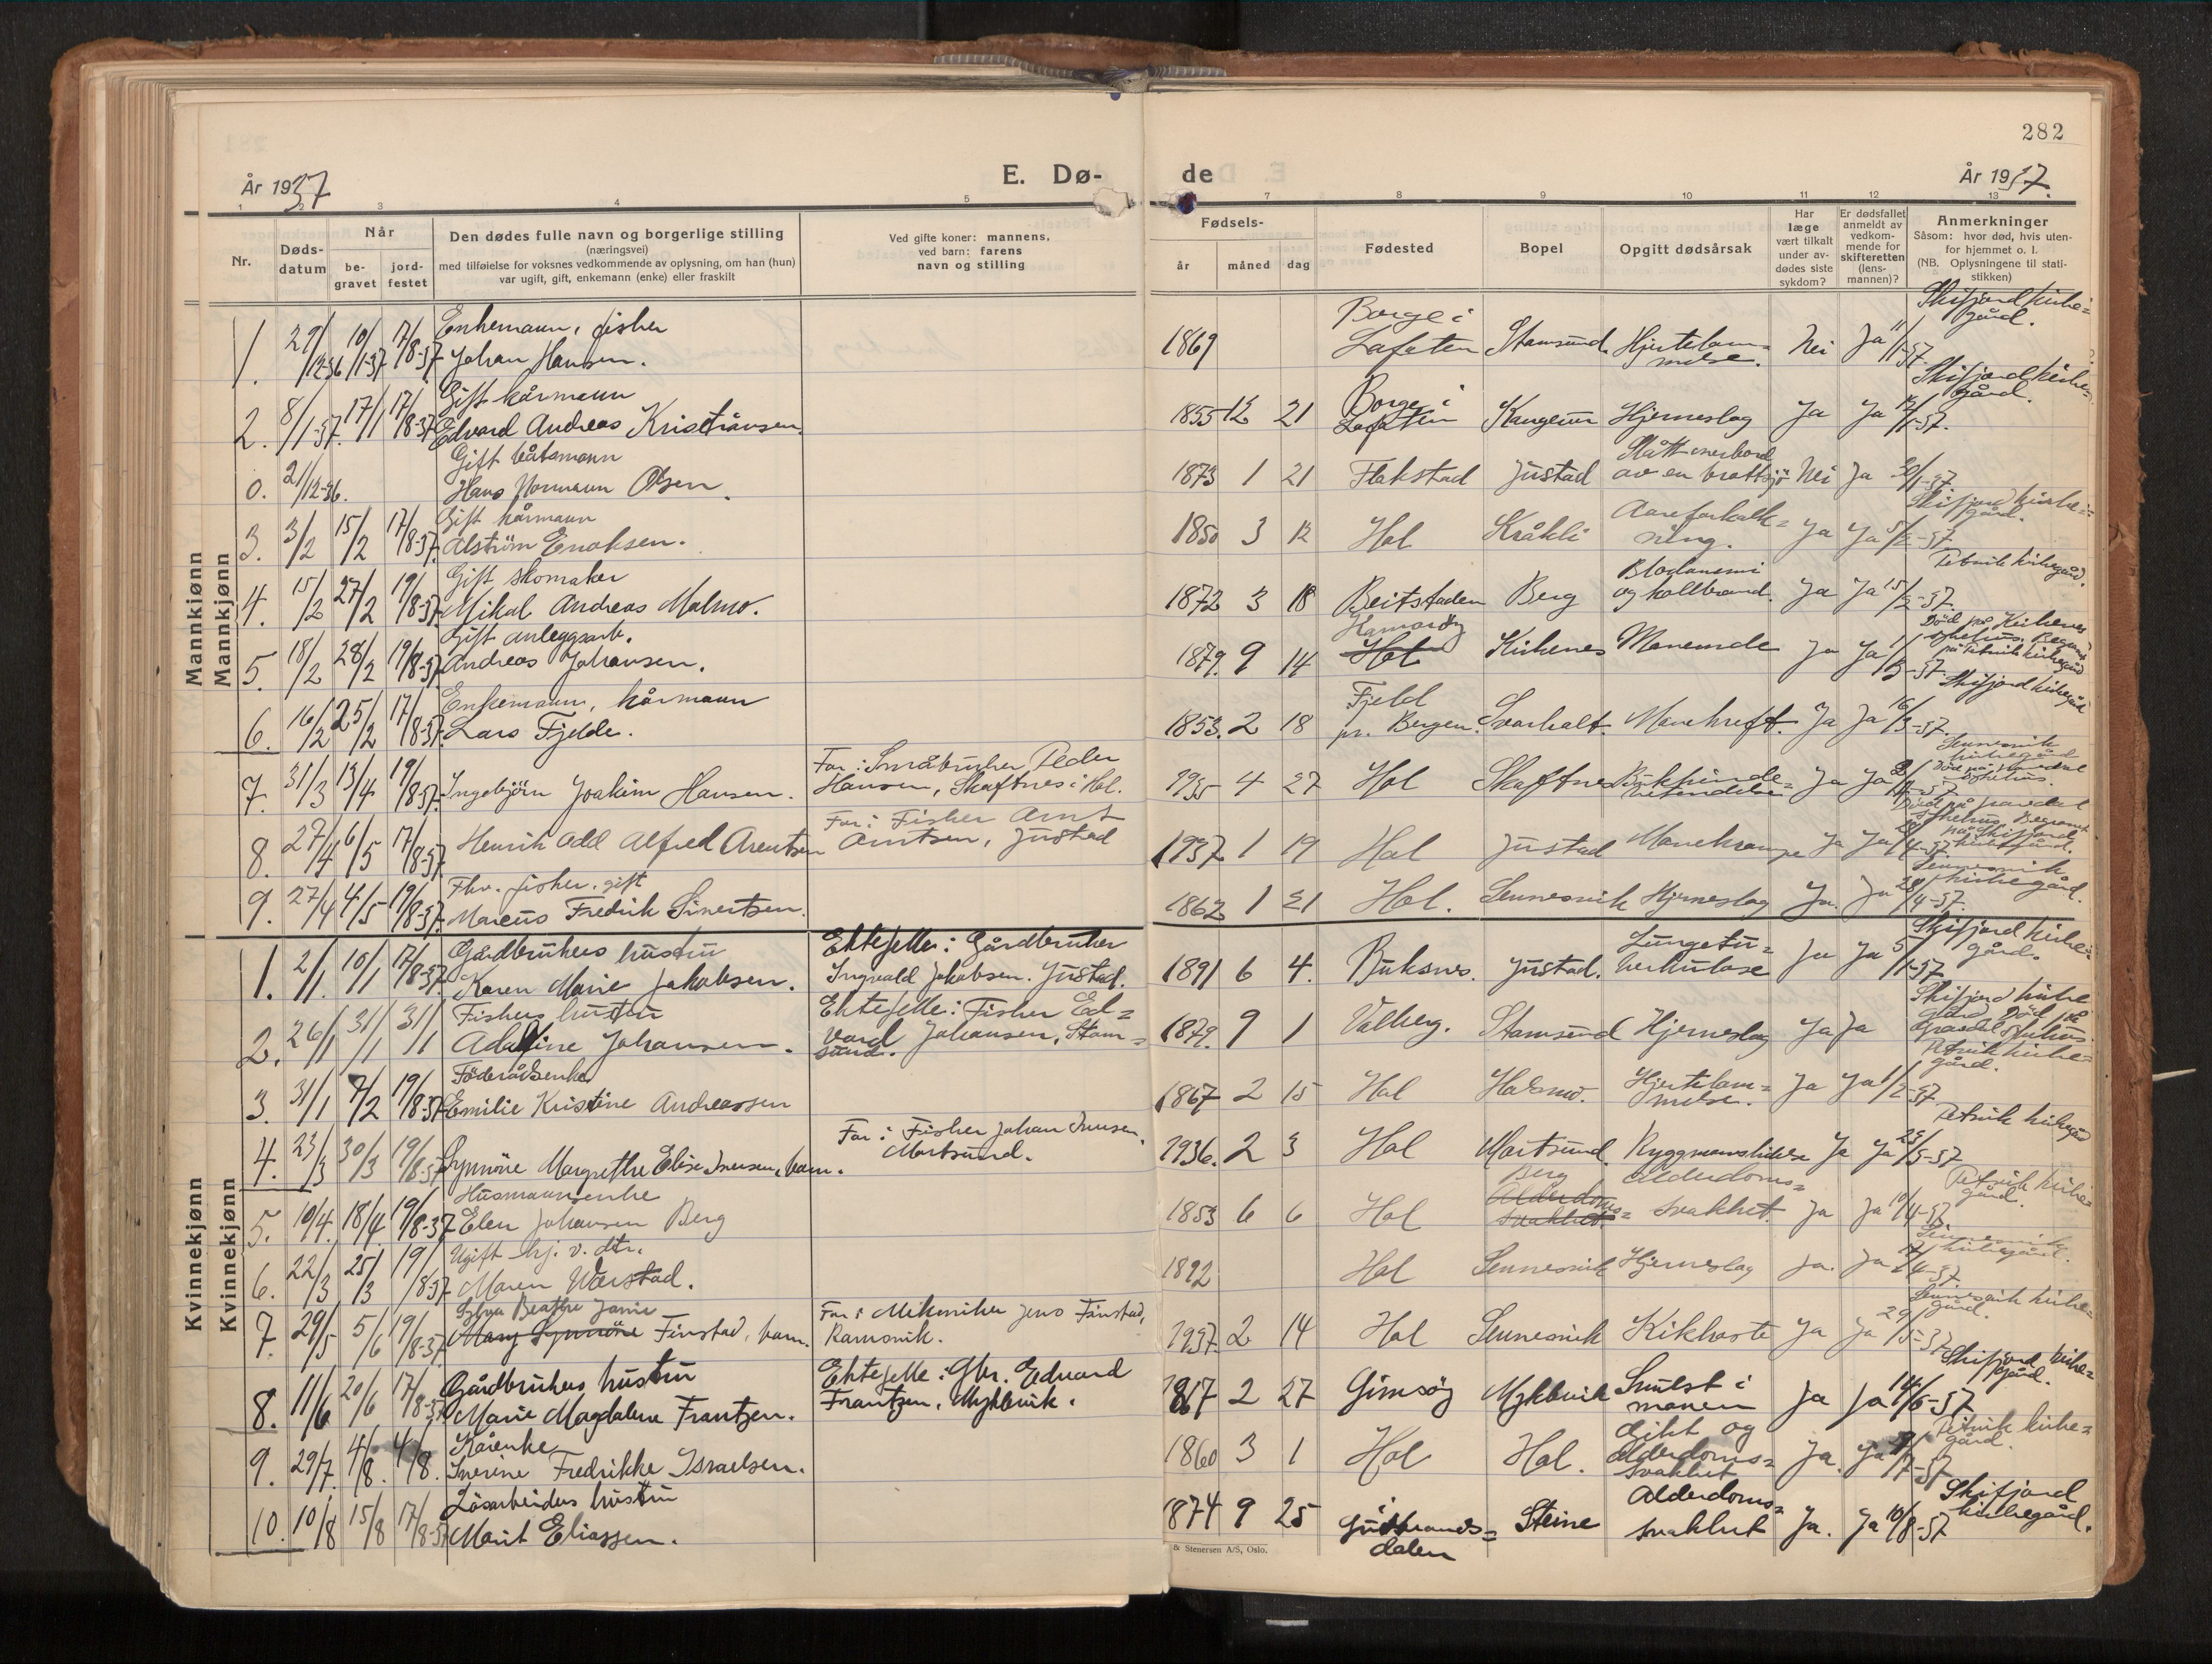 282
E. Dø-
de
År 1937
År 1937.
1 2 3 4 5 7 8 9 10 11 12 13
Nr.
Døds-
datum
Når
be-
gravet
jord-
festet
Den dødes fulle navn og borgerlige stilling
(næringsvei)
med tilføielse for voksnes vedkommende av oplysning, om han (hun)
var ugift, gift, enkemann (enke) eller fraskilt
Ved gifte koner: mannens,
ved barn: farens
navn og stilling
Fødsels-
år måned dag
Fødested
Bopel
Opgitt dødsårsak
Har
læge
vært tilkalt
under av-
dødes siste
sykdom?
Er dødsfallet
anmeldt av
vedkom-
mende for
skifteretten
(lens-
mannen)?
Anmerkninger
Såsom: hvor død, hvis uten-
for hjemmet o. l.
(NB. Oplysningene til stati-
stikken)
Mannkjønn
Mannkjønn
1. 29/12-36 10/1-37 17/8-37 Enkemann, fisker
Johan Hansen.
1869 Borge i
Lofoten Stamsund Hjertelam=
melse. Nei Ja 11/1-37. Skifjord kirke=
gård.
2. 8/1-37. 17/1 17/8-37 Gift kårmann
Edvard Andreas Kristiansen
1855 12 21 Borge i
Lofoten Hjerneslag Ja Ja 12/1-37. Skifjord kirke=
gård.
0. 21/12-36. Gift båtsmann
Hans Normann Olsen.
1873 1 21 Flakstad Justad Slått overbord
av en brottsjø Nei Ja 20/1-37.
3. 3/2 15/2 17/8-37. Gift kårmann
Alström Enoksen.
1850 3 12 Hol Kråkli Aareforkalk=
ning. Ja Ja 5/2-37 Skifjord kirke=
gård.
4. 15/2 27/2 19/8-37. Gift skomaker
Mikal Andreas Malmo.
1872 3 18 Beitstaden Berg Blodanemi
og kollbrand. Ja Ja 15/2-37. Petvik kirkegård.
5. 18/2 28/2 19/8-37 Gift anleggsarb.
Andreas Johansen.
1879. 9 14 Hamarøy
Hol Kirkenes Ja Ja 1/3-37. Død på Kirkenes
sykehus. Begravet
på Petvik kirkegård
6. 16/2 25/2 17/8-37. Enkemann, kårmann
Lars Fjelde.
1853. 2 18 Fjeld
pr. Bergen. Svarholt. Mavekreft. Ja Ja 16/3-37. Skifjord kirkegård
7. 31/3 13/4 19/8-37. Ingebjörn Joakim Hansen.
Far: Småbruker Peder
Hansen, Skaftnes i Hol.
1935 4 27 Hol Skaftnes Bukhinde=
betendelse Ja Ja Sennesvik
kirkegård
Død på Gravdal
sykehus.
8. 27/4 6/5 17/8-37 Henrik Odd Alfred Arentsen
Far: Fisker Arnt
Arntsen, Justad
1937 1 19 Hol Justad Mavekrampe Ja Ja Død på Gravdal
sykehus. Begravet
på Skifjord
kirkegård.
9. 27/4 4/5 19/8-37. Fhv. fisker, gift
Marcus Fredrik Sivertsen.
1862 1 21 Hol. Sennesvik Hjerneslag Ja. Ja 28/4-37. Sennesvik
kirkegård.
Kvinnekjønn
Kvinnekjønn
1. 2/1. 10/1 17/8-37 Gårdbrukers hustru
Karen Marie Jakobsen.
Ektefelle: Gårdbruker
Ingvald Jakobsen. Justad.
1891 6 4. Buksnes. Justad. Lungetu=
berkulose Ja Ja 5/1-37 Skifjord kirke=
gård.
2. 26/1 31/1 31/1 Fiskers hustru
Adolfine Johansen.
Ektefelle: Fisker Ed=
vard Johansen, Stam=
sund.
1879. 9 1 Valberg. Stamsund Hjerneslag Ja Ja Skifjord kirke
gård. Død på
Gravdal sykehus.
3. 31/1 7/2 19/8-37 Föderådsenke
Emilie Kristine Andreassen
1867 2 15 Hol Holsmo. Hjertelam=
melse. Ja Ja 1/2-37 Petvik kirke=
gård.
4. 23/3 30/3 19/8-37 Synnöve Margrethe Elise Iversen, barn.
Far: Fisker Johan Iversen.
Mortsund.
1936. 2 3 Hol Mortsund. Ja Ja Petvik kirkegård
5. 10/4. 18/4. 19/8-37 Husmannsenke
Elen Johansen Berg
1853 6 6 Hol Berg
Alderdoms=
svakhet. Alderdoms=
svakhet. Ja Ja 10/4-37 Petvik kirke=
gård.
6. 22/3 25/3 19/8-37 Ugift hj. v. dtr.
Maren Værstad.
1892 Hol Sennesvik Hjerneslag Ja. Ja Sennesvik
kirkegård.
7. 29/5 5/6 19/8-37 Sylva Beathe Janie
Mary Synnöve Finstad, barn.
Far: Mekaniker Jens Finstad,
Ramsvik.
1937 2 14 Hol Sennesvik Kikhoste Ja Ja 29/5-37 Sennesvik kirke=
gård.
8. 11/6 20/6 17/8-37 Gårdbrukers hustru
Marie Magdalene Frantzen.
Ektefelle: Gbr. Edvard
Frantzen, Myklevik.
1867 2 27 Gimsöy Myklevik Svulst i
maven Ja Ja 14/6-37 Skifjord kirke=
gård.
9. 29/7. 4/8. 4/8. Kårenke
Iverine Fredrikke Israelsen.
1860 3 1 Hol Hol. Gikt og
alderdoms=
svakhet Ja. Ja Petvik kirke=
gård.
10. 10/8 15/8 17/8-37 Lösarbeiders hustru
Marit Eliassen.
1874 9 25 Gudbrands=
dalen Steine Alderdoms=
svakhet Ja. Ja 10/8-37 Skifjord
kirkegård.
& Stenersen A/S, Oslo.